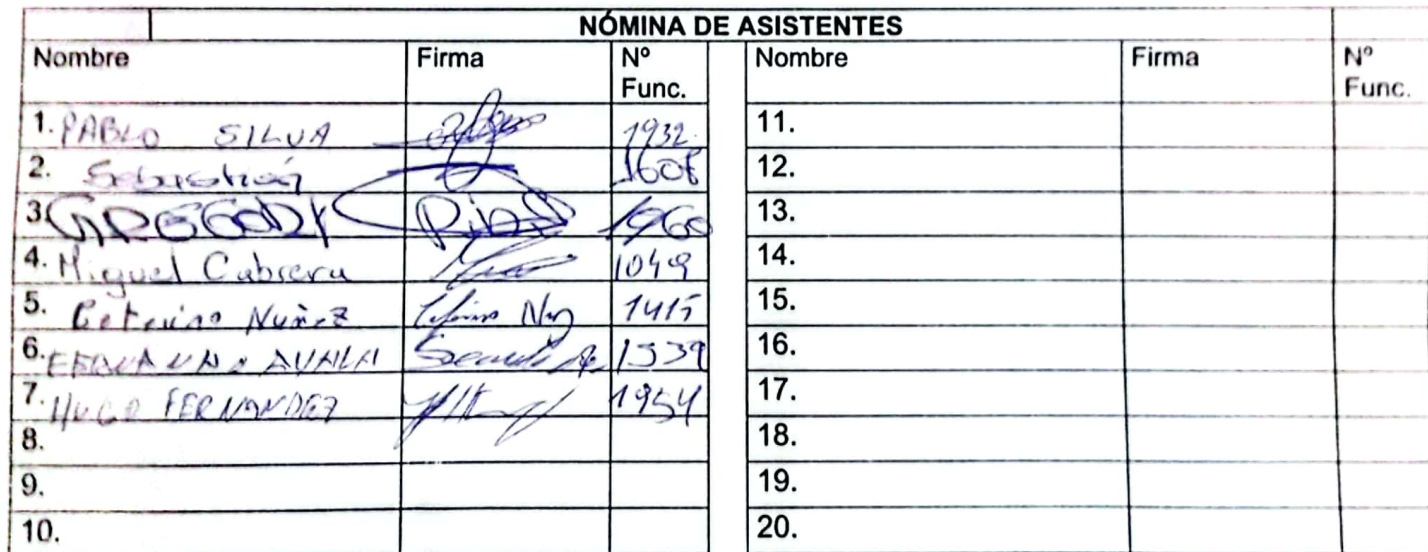 NÓMINA DE ASISTENTES
Nombre Firma Nº Func. Nombre Firma Nº Func.
1. PABLO SILVA 1932 11.
2. Sebastián 1608 12.
3. GREGORY 1960 13.
4. Miguel Cabrera 1049 14.
5. Nuñez 1415 15.
6. 1539 16.
7. HUGO FERNANDEZ 1954 17.
8. 18.
9. 19.
10. 20.